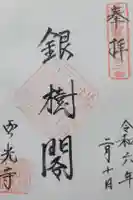 奉拝
令和六年
二月十日
銀樹閣
西光寺